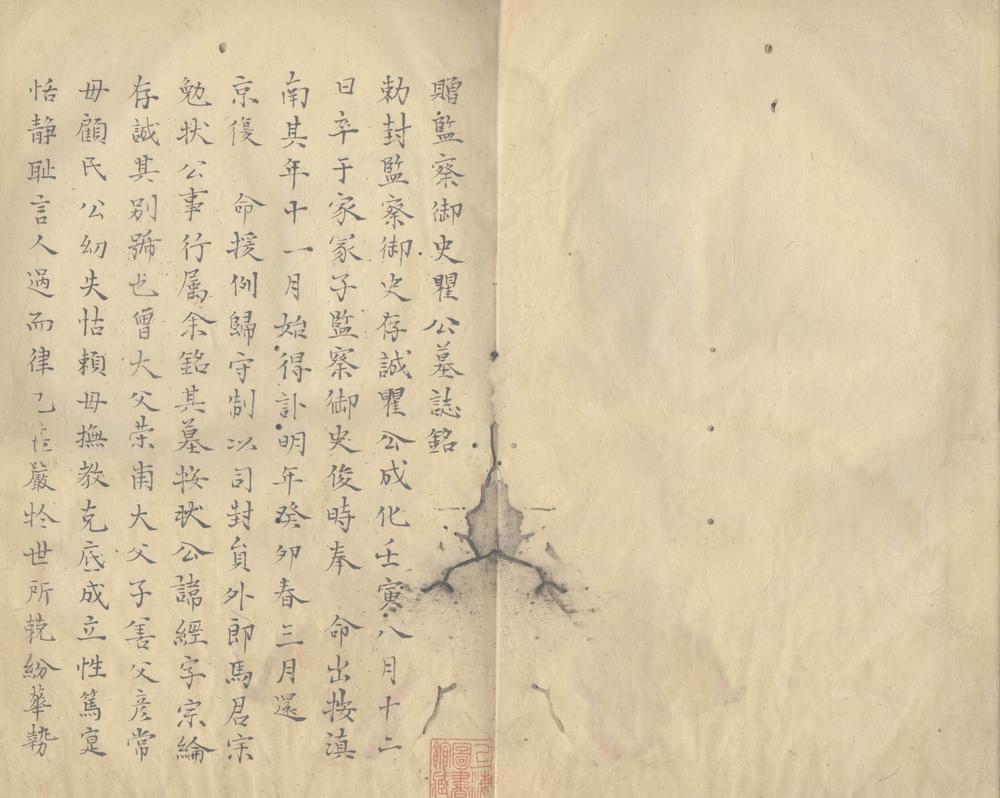 贈監察御史瞿公墓誌銘
勅封監察御史存誠瞿公成化壬寅八月十二
日卒于家冢子監察御史俊時奉　命出按滇
南其年十一月始得訃明年癸卯春三月還
京復　命援例歸守制以司封員外郎馬君宗
勉狀公事行属余銘其墓按狀公諱經字宗綸
存誠其别號也曾大父荣甫大父子善父彦常
毋顧氏公幼失怙頼毋撫教克底成立性篤寔
恬静耻言人過而律己嚴扵世所䡖紛華勢
上海圖書館藏